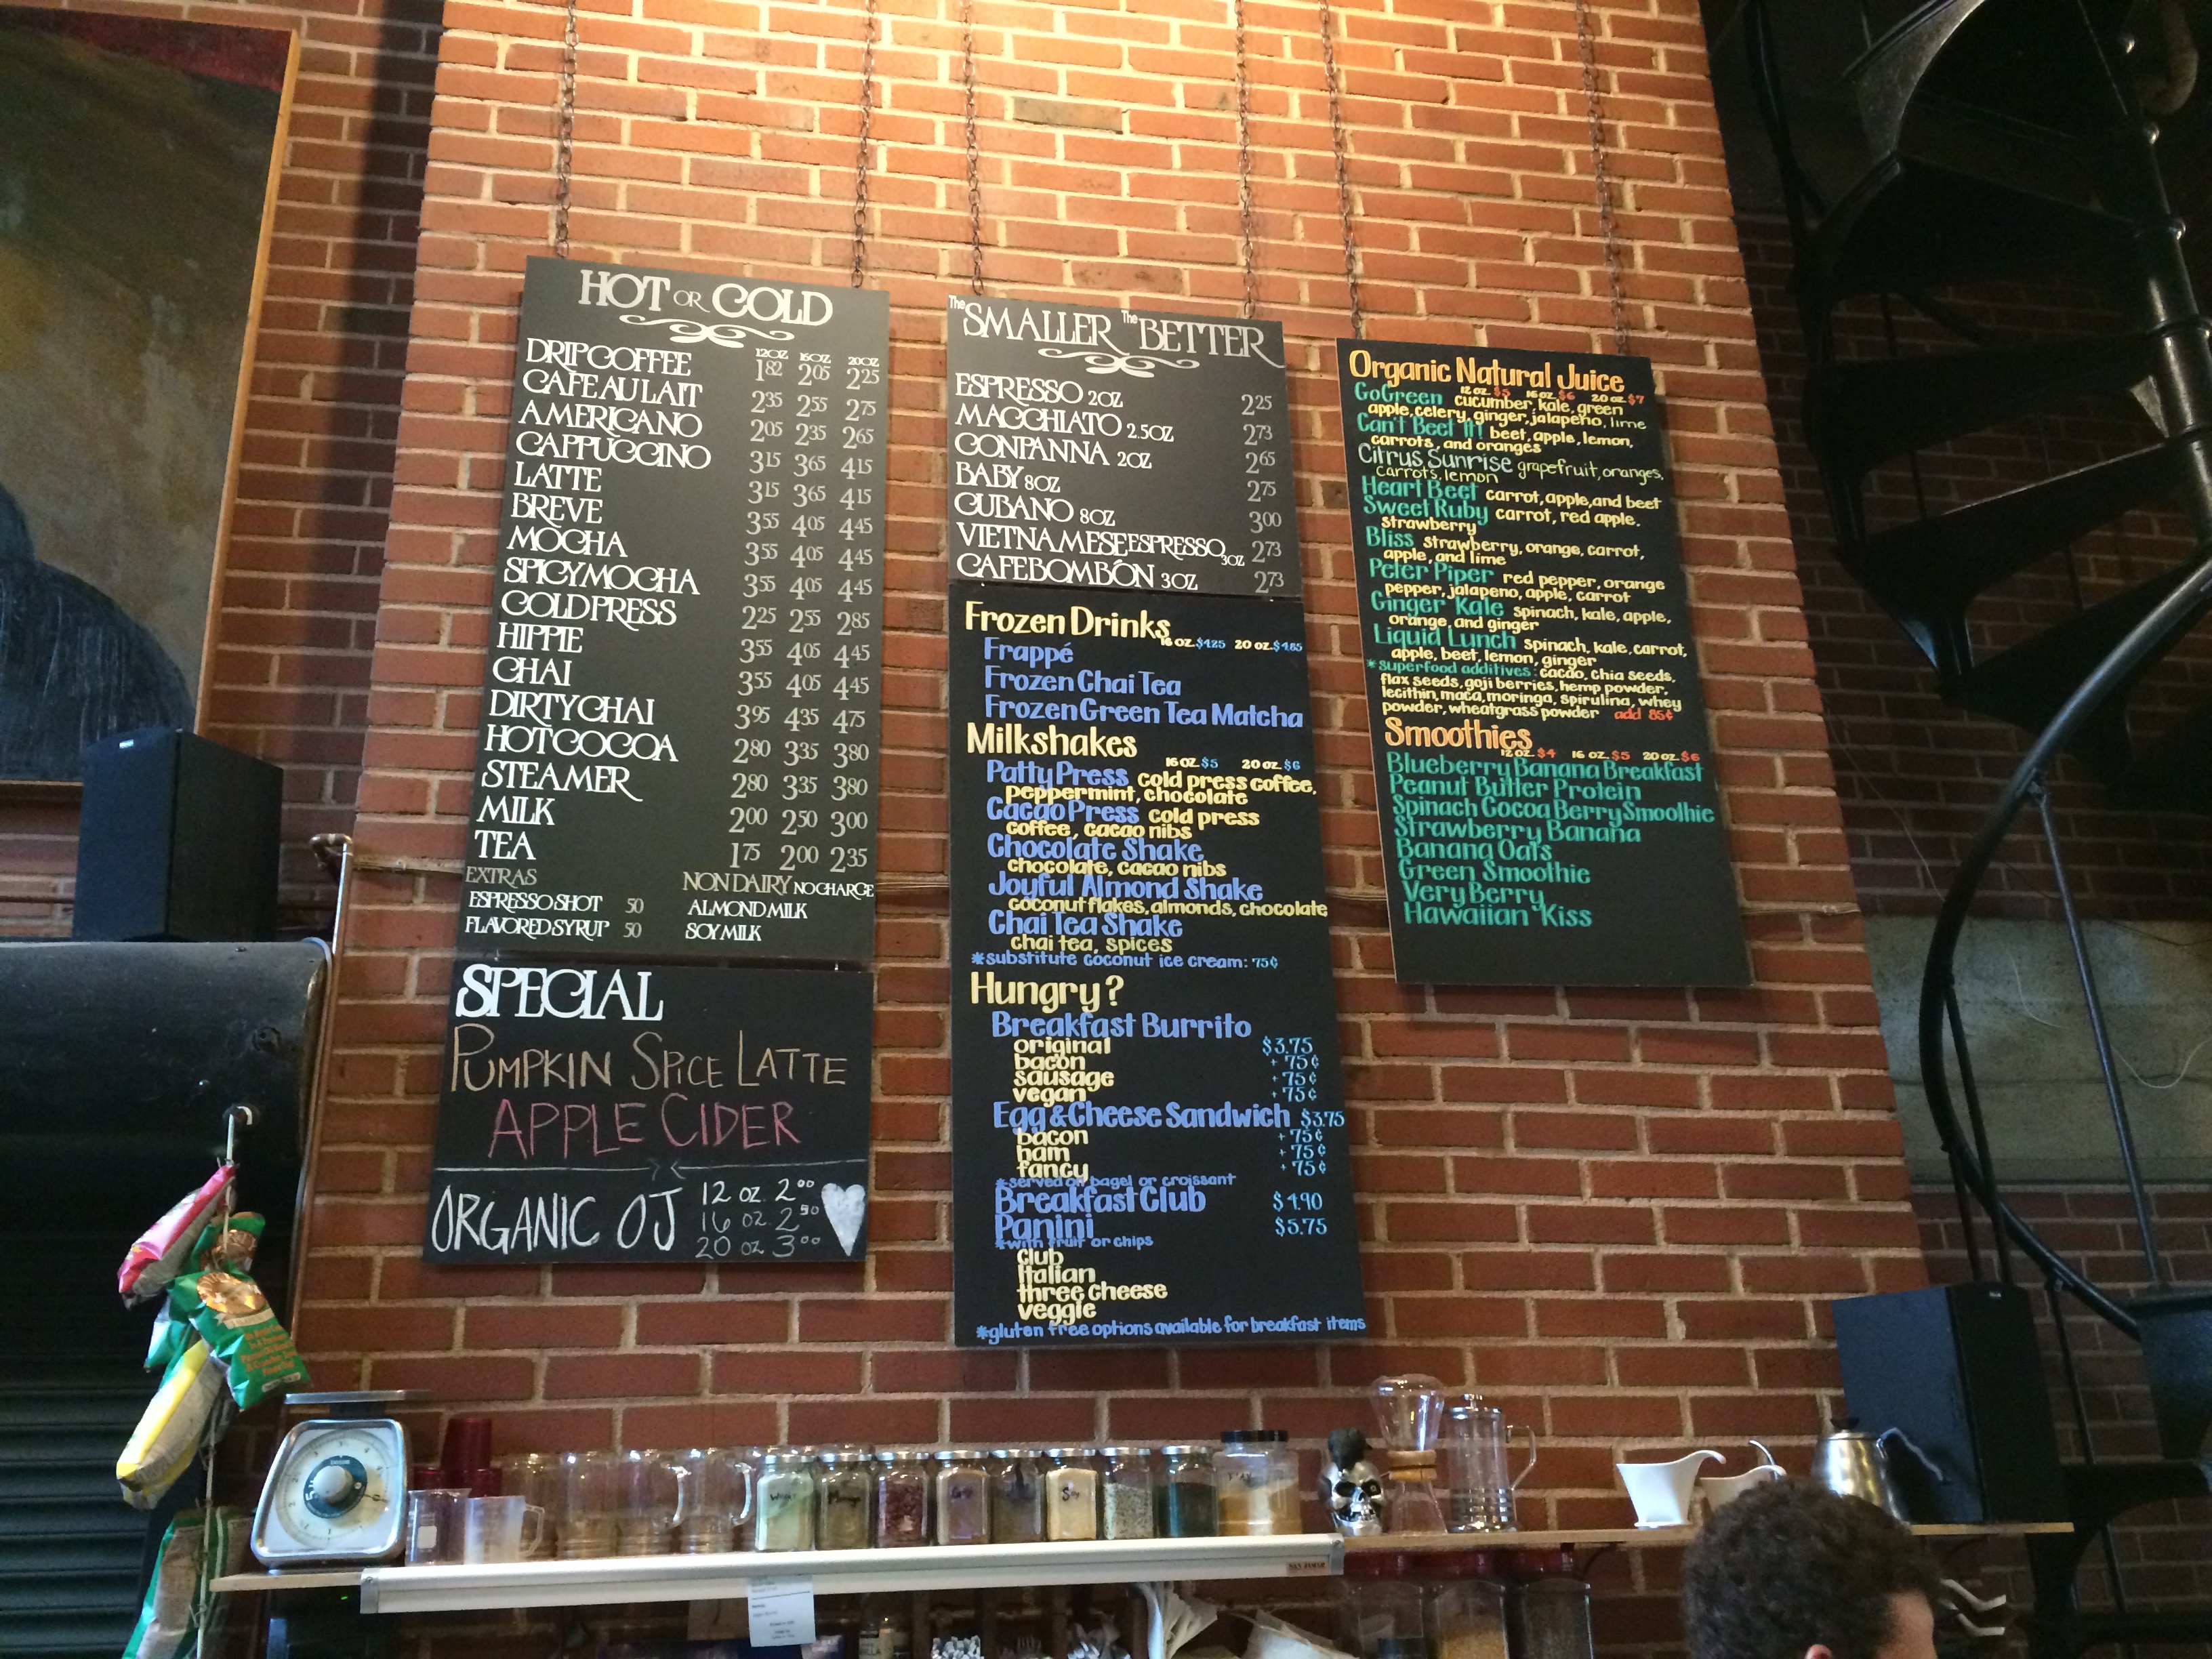 HOT OR COLD
12OZ 16OZ 20OZ
DRIP COFFEE 1.82 2.05 2.25
CAFE AU LAIT 2.35 2.55 2.75
AMERICANO 2.05 2.35 2.65
CAPPUCCINO 3.15 3.65 4.15
LATTE 3.15 3.65 4.15
BREVE 3.55 4.05 4.45
MOCHA 3.55 4.05 4.45
SPICY MOCHA 3.55 4.05 4.45
COLD PRESS 2.25 2.55 2.85
HIPPIE 3.55 4.05 4.45
CHAI 3.55 4.05 4.45
DIRTY CHAI 3.95 4.35 4.75
HOT COCOA 2.80 3.35 3.80
STEAMER 2.80 3.35 3.80
MILK 2.00 2.50 3.00
TEA 1.75 2.00 2.35
EXTRAS NON DAIRY NO CHARGE
ESPRESSO SHOT 50 ALMOND MILK
FLAVORED SYRUP 50 SOY MILK
SPECIAL
PUMPKIN SPICE LATTE
APPLE CIDER
ORGANIC OJ
12 OZ. 2.00
16 OZ. 2.50
20 OZ 3.00
The SMALLER The BETTER
ESPRESSO 2OZ 2.25
MACCHIATO 2.5OZ 2.73
CONPANNA 2OZ 2.65
BABY 8OZ 2.75
CUBANO 8OZ 3.00
VIETNAMESE ESPRESSO 3OZ 2.73
CAFE BOMBÓN 3OZ 2.73
Frozen Drinks
16 oz. $4.25 20 oz. $4.85
Frappé
Frozen Chai Tea
Frozen Green Tea Matcha
Milkshakes
16 oz. $5 20 oz. $6
Patty Press cold press coffee,
peppermint, chocolate
Cacao Press cold press
coffee, cacao nibs
Chocolate Shake
chocolate, cacao nibs
Joyful Almond Shake
coconut flakes, almonds, chocolate
Chai Tea Shake
chai tea, spices
*substitute coconut ice cream: 75¢
Hungry?
Breakfast Burrito
original $3.75
bacon + 75¢
sausage + 75¢
vegan + 75¢
Egg & Cheese Sandwich $3.75
bacon + 75¢
ham + 75¢
fancy + 75¢
*served on bagel or croissant
Breakfast Club $4.90
Panini $5.75
*with fruit or chips
club
Italian
three cheese
veggie
*gluten free options available for breakfast items
Organic Natural Juice
12 oz. $5 16 oz. $6 20 oz. $7
GoGreen cucumber, kale, green
apple, celery, ginger, jalapeño, lime
Can't Beet It! beet, apple, lemon,
carrots, and oranges
Citrus Sunrise grapefruit, oranges,
carrots, lemon
Heart Beet carrot, apple, and beet
Sweet Ruby carrot, red apple,
strawberry
Bliss strawberry, orange, carrot,
apple, and lime
Peter Piper red pepper, orange
pepper, jalapeno, apple, carrot
Ginger Kale spinach, kale, apple,
orange, and ginger
Liquid Lunch spinach, kale, carrot,
apple, beet, lemon, ginger
*superfood additives: cacao, chia seeds,
flax seeds, goji berries, hemp powder,
lecithin, maca, moringa, spirulina, whey
powder, wheatgrass powder add 85¢
Smoothies
12 oz. $4 16 oz. $5 20 oz. $6
Blueberry Banana Breakfast
Peanut Butter Protein
Spinach Cocoa Berry Smoothie
Strawberry Banana
Banana Oats
Green Smoothie
Very Berry
Hawaiian Kiss